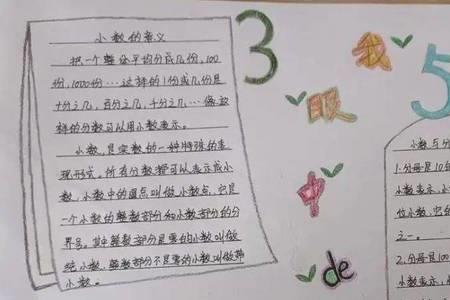 小数的意义
把一个整体平均分成几份,100
份,1000份…这样的1份或几份是
十分之几,百分之几,千分之几…像这
样的分数可以用小数表示。
小数,是实数的一种特殊的表
现形式。所有分数都可以表示成小
数,小数中的圆点叫做小数点,它是
一个小数的整数部分和小数部分的分
界号。其中整数部分是零的小数叫做
纯小数,整数部分不是零的小数叫做带
小数。
3
我
眼
中
de
5
小数与分
1.分母是10的
小数表示,小
位小数,它的
之一。
2.分母是100
小数表示,